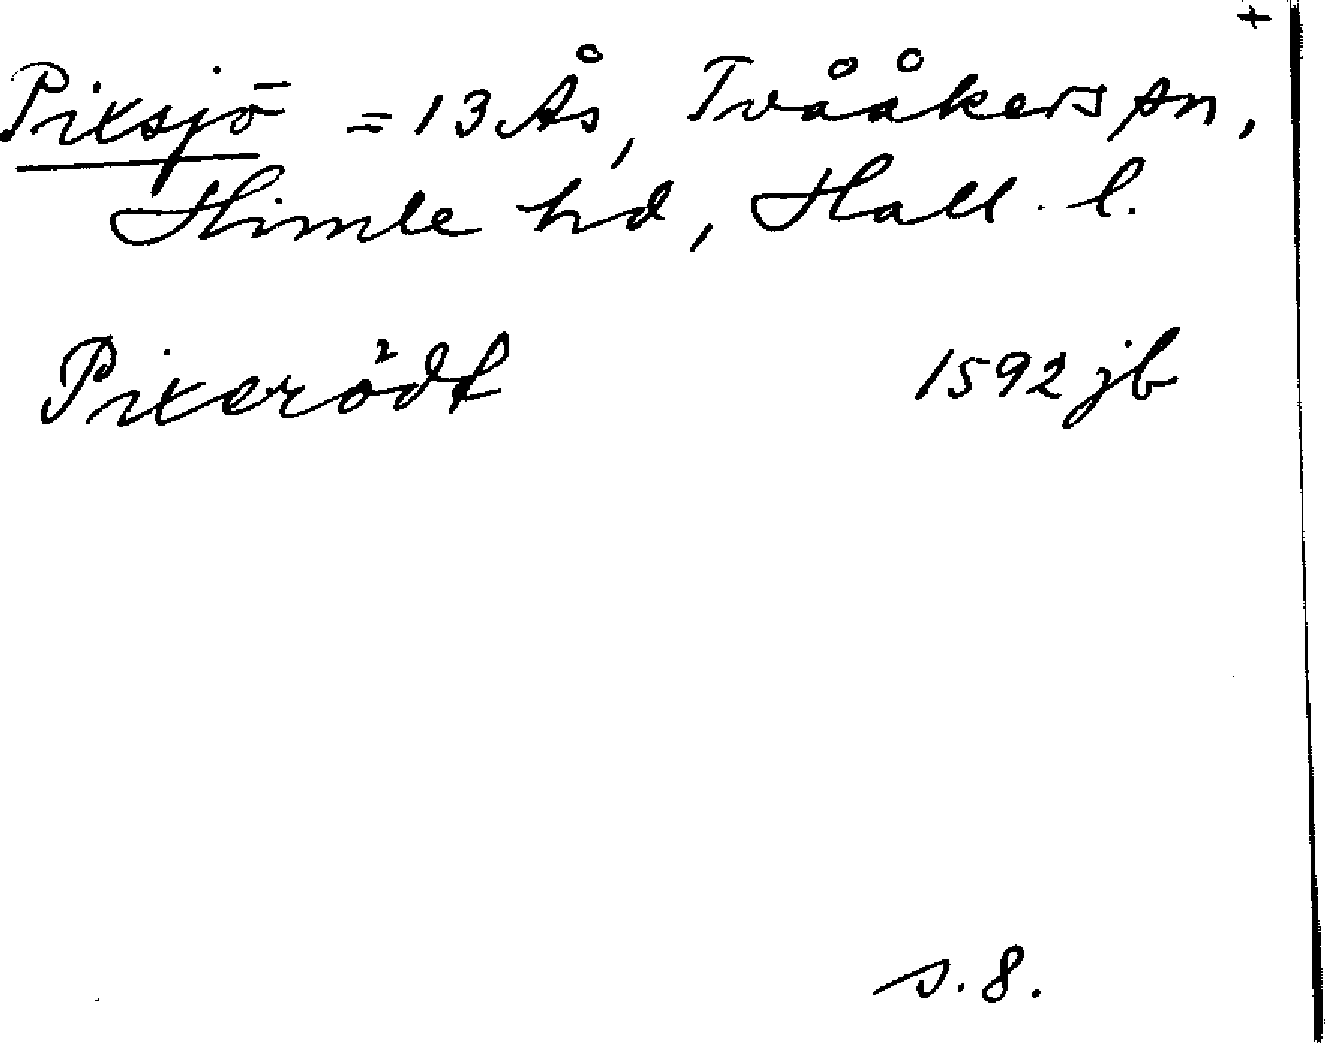 +
Pixsjö = 13 Ås, Tvååkers sn,
Himle hd, Hall. l.
Pixerödt 1592 jb
s. 8.